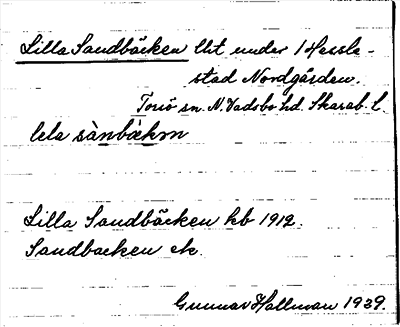 Lilla Sandbäcken lht under 1 Hessle-
stad Nordgården.
Torsö sn. N. Vadsbo hd. Skarab. l.
lela sànbækņ
Lilla Sandbäcken kb 1912.
Sandbacken ek.
Gunnar Hallman 1939.